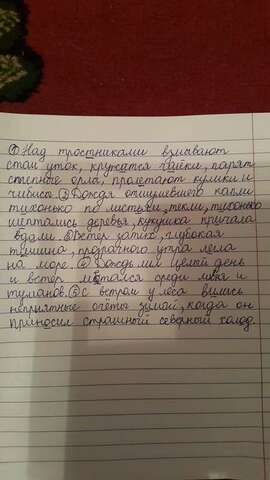 ①Над тростниками взмывают
стаи уток, кружатся чайки, парят
степные орлы, пролетают кулики и
чибисы ②Дождя отшумевшего капли
тихонько по листьям текли, тихонько
шептались деревья, кукушка кричала
вдали. ③Ветер затих, глубокая
тишина, прозрачного утра легла
на море. ④Дождь лил целый день
и ветер метался среди мрака и
туманов. ⑤С ветром у леса вились
неприятные счёты зимой, когда он
приносил страшный северный холод.